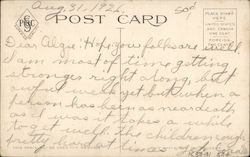 Aug. 31, 1926.
50¢
POST CARD
PLACE STAMP HERE
UNITED STATES AND CANADA ONE CENT
FOREIGN TWO CENTS
Dear Algie: Hope you folks are well. I
am most of time getting
stronger right along, but
awful weak yet but when a
person has been as near death
as I was it takes a while
to get well. The children are
pretty good at times